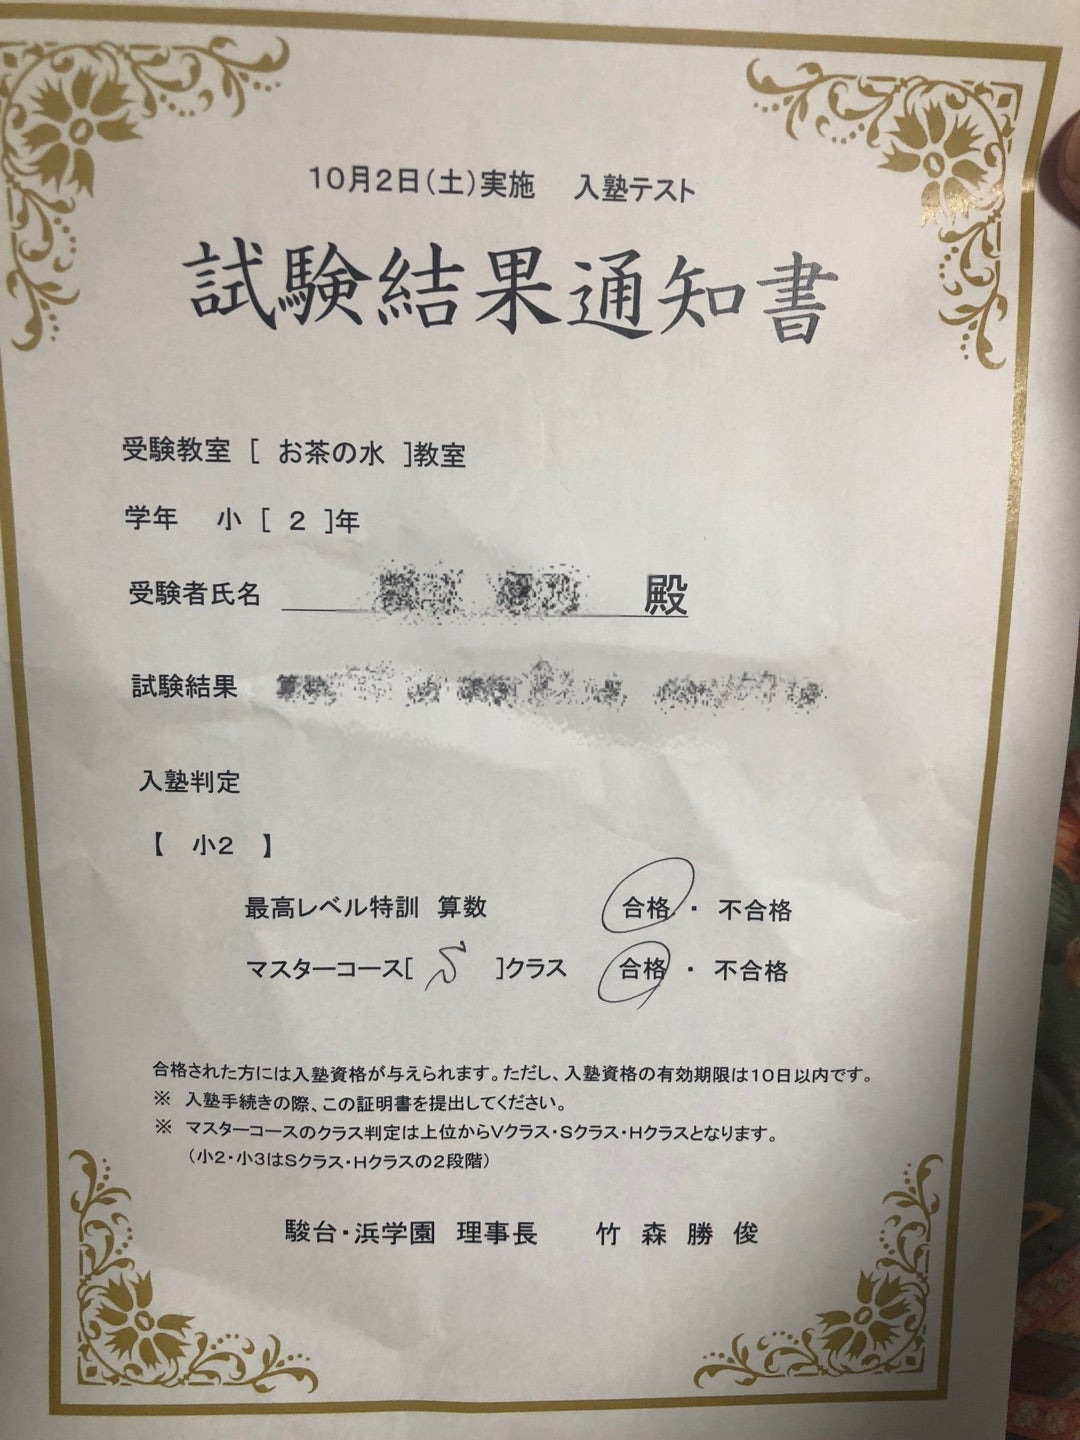 10月2日(土)実施　入塾テスト
試験結果通知書
受験教室 [ お茶の水 ]教室
学年　小 [ 2 ]年
受験者氏名　殿
試験結果
入塾判定
【 小2 】
最高レベル特訓 算数　合格・不合格
マスターコース[ S ]クラス　合格・不合格
合格された方には入塾資格が与えられます。ただし、入塾資格の有効期限は10日以内です。
※ 入塾手続きの際、この証明書を提出してください。
※ マスターコースのクラス判定は上位からVクラス・Sクラス・Hクラスとなります。
(小2・小3はSクラス・Hクラスの2段階)
駿台・浜学園 理事長　竹森勝俊